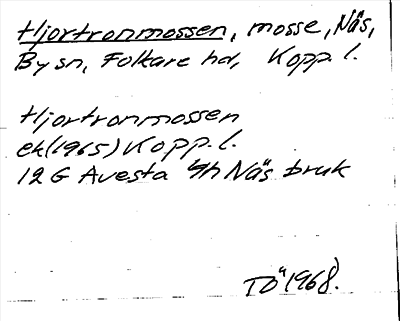 Hjortronmossen, mosse, Näs,
By sn, Folkare hd, Kopp. l.
Hjortronmossen
ek(1965) Kopp. l.
12G Avesta 4h Näs bruk
TÖ 1968.